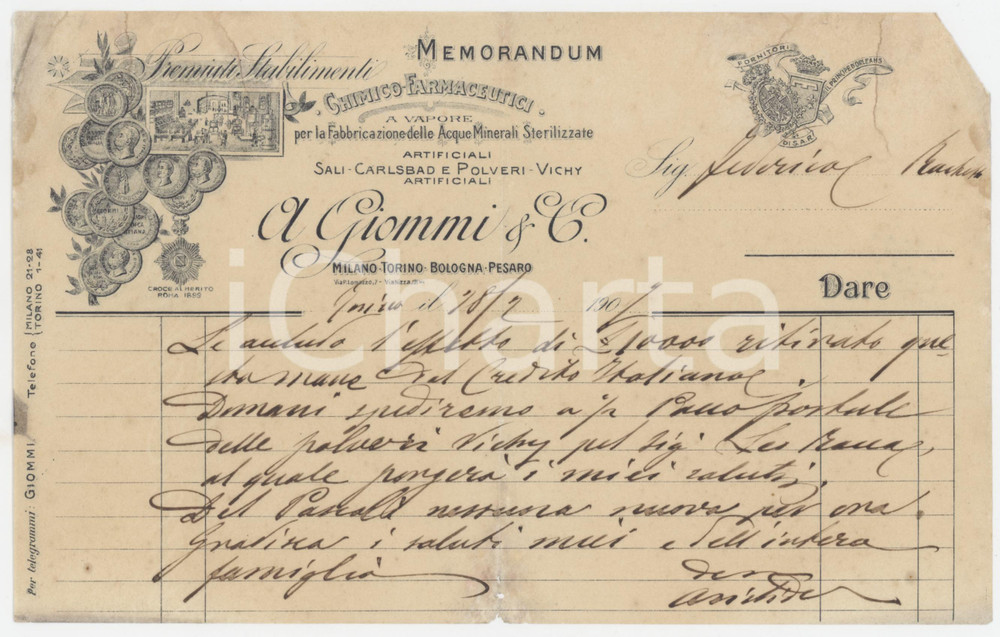 MEMORANDUM
Premiati Stabilimenti
CHIMICO-FARMACEUTICI
A VAPORE
per la Fabbricazione delle Acque Minerali Sterilizzate
ARTIFICIALI
SALI-CARLSBAD E POLVERI-VICHY
ARTIFICIALI
A Giommi & C.
MILANO-TORINO-BOLOGNA-PESARO
CROCE AL MERITO
ROMA 1889
FORNITORI
DI S.A.R.
Sig. Federico
Dare
Torino il 18/7 1907
Le accludo l'effetto di £ 1000 ritirato que-
sta mane dal Credito Italiano.
Domani spediremo a 1/2 Pacco postale
delle polveri Vichy pel Sig
al quale porgerà i miei saluti.
Del Pascali nessuna nuova per ora
Gradisca i saluti miei e dell'intera
famiglia
Aristide
Per telegrammi: GIOMMI
Telefono MILANO 21-28
TORINO 1-41
iCharta